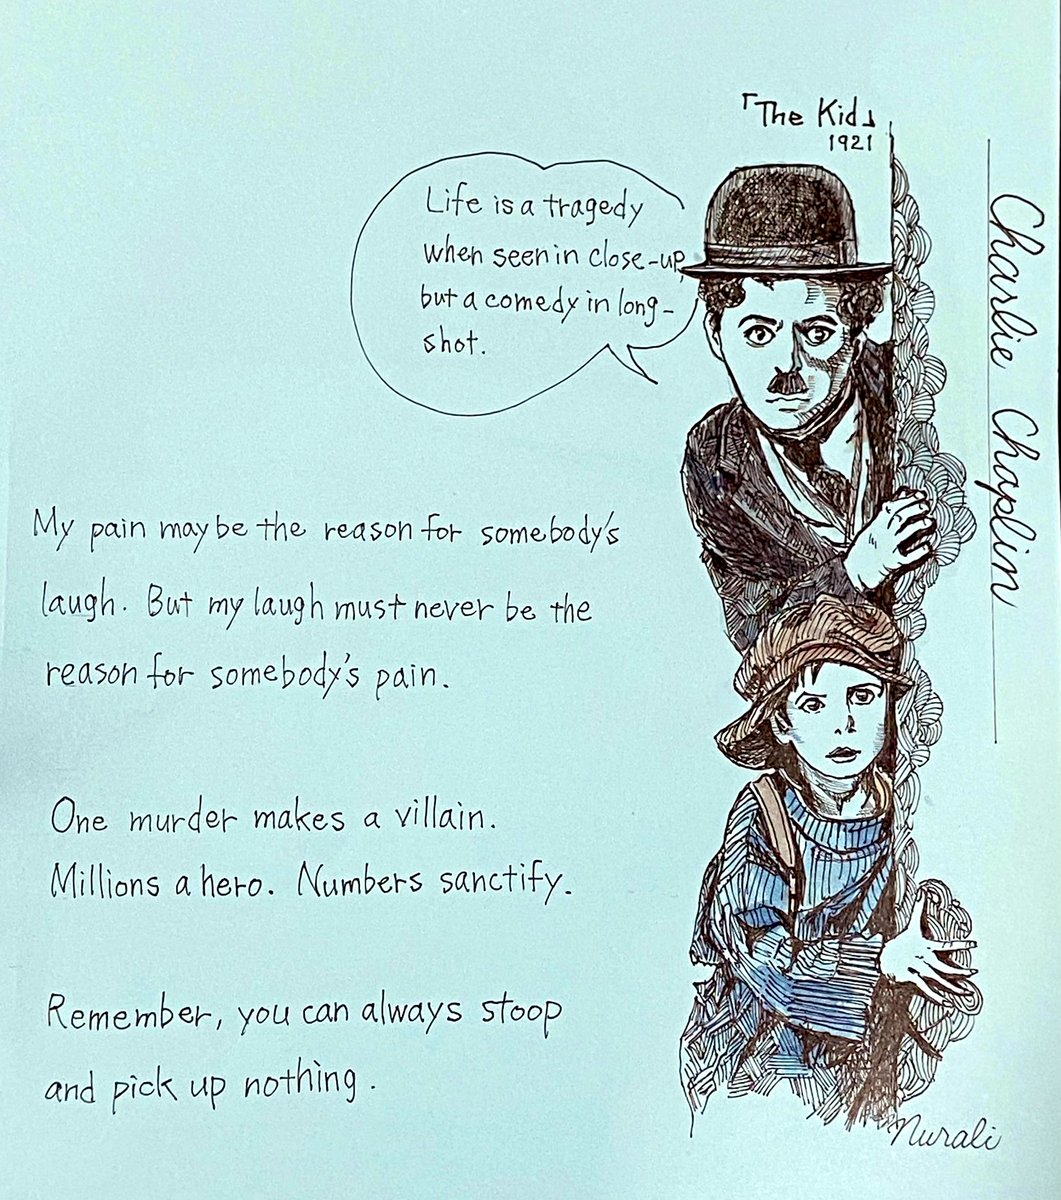 「The Kid」
1921
Life is a tragedy
when seen in close-up,
but a comedy in long-
shot.
Charlie Chaplin
My pain may be the reason for somebody's
laugh. But my laugh must never be the
reason for somebody's pain.
One murder makes a villain.
Millions a hero. Numbers sanctify.
Remember, you can always stoop
and pick up nothing.
Nurali